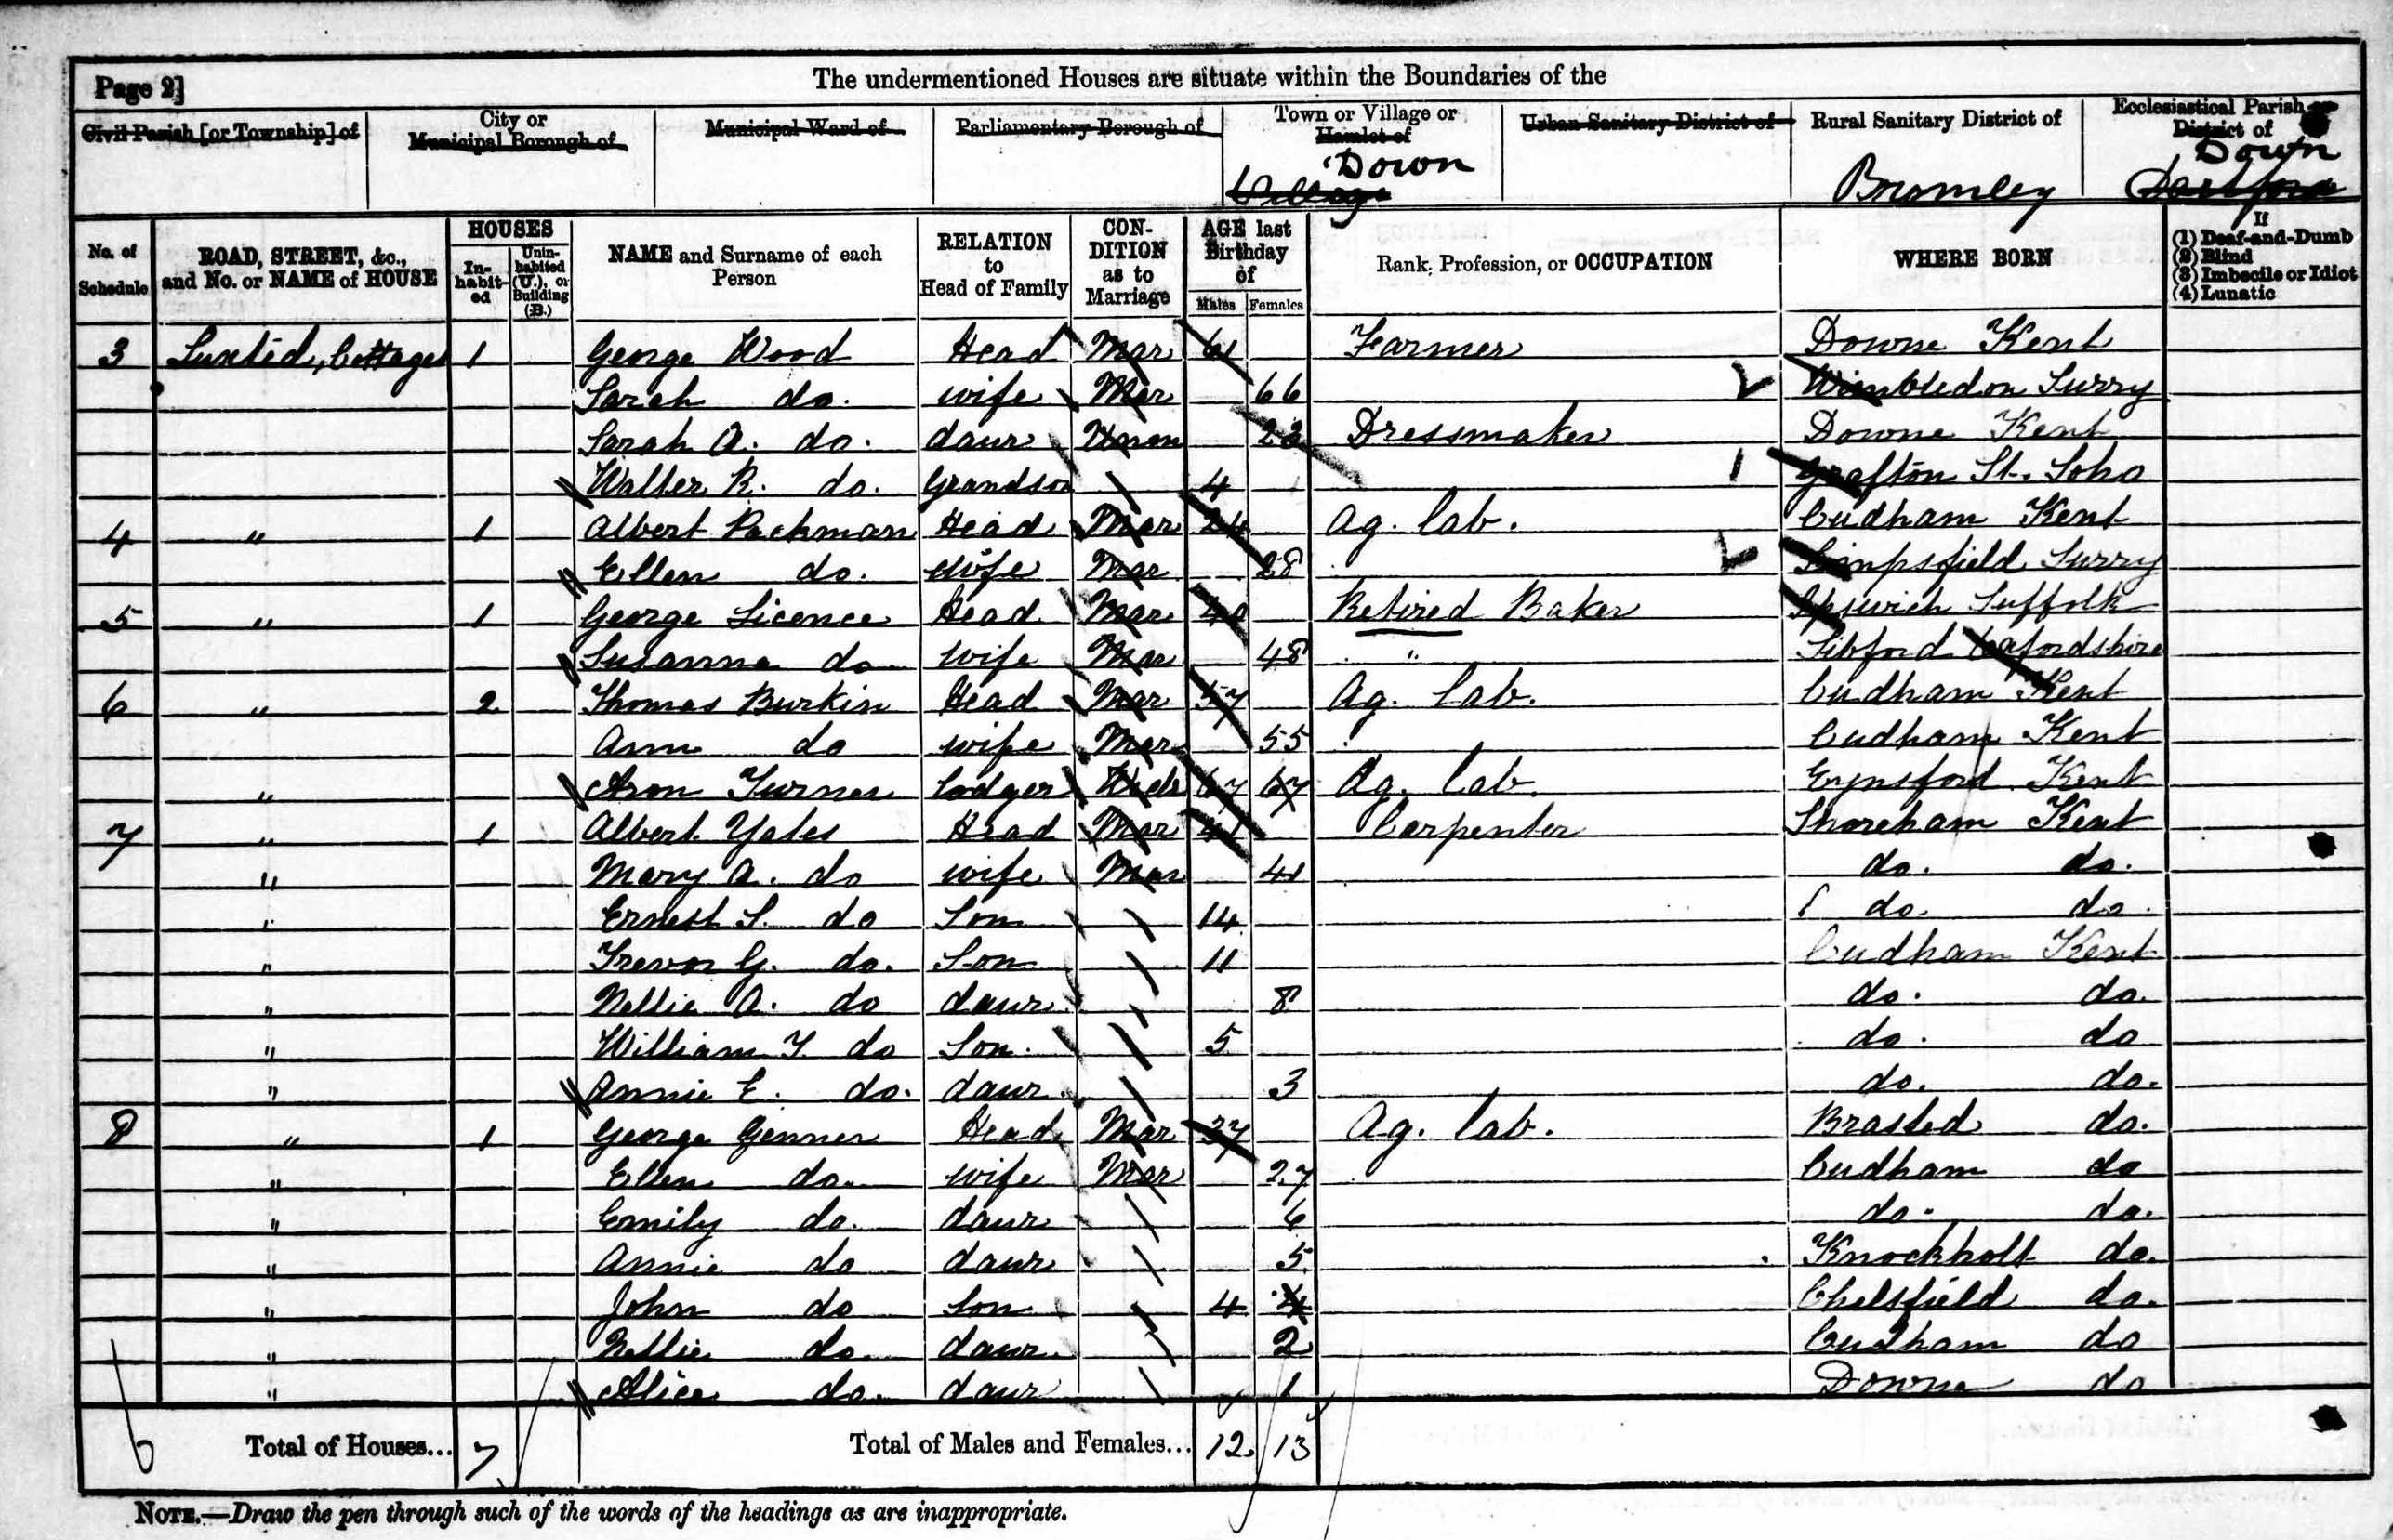 Page 2]
The undermentioned Houses are situate within the Boundaries of the
Civil Parish [or Township] of
City or Municipal Borough of
Municipal Ward of
Parliamentary Borough of
Town or Village or Hamlet of
Urban Sanitary District of
Rural Sanitary District of
Ecclesiastical Parish or District of
Village Down
Bromley
Down
No. of Schedule
ROAD, STREET, &c., and No. or NAME of HOUSE
HOUSES
In-habit-ed
Unin-habited (U.), or Building (B.)
NAME and Surname of each Person
RELATION to Head of Family
CON-DITION as to Marriage
AGE last Birthday of
Males Females
Rank, Profession, or OCCUPATION
WHERE BORN
If
(1) Deaf-and-Dumb
(2) Blind
(3) Imbecile or Idiot
(4) Lunatic
3 Luxted, Cottages 1 George Wood Head Mar 61 Farmer Downe Kent
Sarah do. wife Mar 66 Wimbledon Surry
Sarah A. do. daur Unm 23 Dressmaker Downe Kent
Walter R. do. Grandson 4 Grafton St. Soho
4 " 1 Albert Packman Head Mar 24 Ag. lab. Cudham Kent
Ellen do. wife Mar 28 Limpsfield Surry
5 " 1 George Licence Head Mar 40 Retired Baker Ipswich Suffolk
Susanna do. wife Mar 48 " Sibford
6 " 2 Thomas Burkin Head Mar 57 Ag. lab. Cudham Kent
Ann do wife Mar 55 Cudham Kent
" Aron Turner Lodger 67 67 Ag. lab. Eynsford Kent
7 " 1 Albert Yates Head Mar 41 Carpenter Shoreham Kent
" Mary A. do wife Mar 41 do. do.
" Ernest S. do Son 14 do. do.
" Trevor G. do. Son 11 Cudham Kent
" Nellie A. do daur 8 do. do.
" William T. do Son. 5 do. do
" Annie E. do. daur. 3 do. do.
8 " 1 George Genner Head Mar 37 Ag. lab. Brasted do.
" Ellen do. wife Mar 27 Cudham do
" Emily do. daur 6 do. do.
" Annie do daur 5 Knockholt do.
" John do Son 4 4 Chelsfield do.
" Nellie do. daur. 2 Cudham do
" Alice do. daur 1 Downe do
6 Total of Houses... 7 Total of Males and Females... 12 13
NOTE.—Draw the pen through such of the words of the headings as are inappropriate.